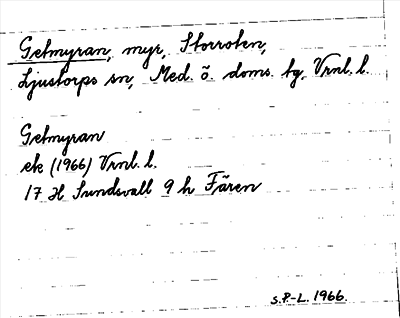 Getmyran, myr, Storroten,
Ljustorps sn, Med. ö. doms. tg, Vrnl. l.
Getmyran
ek (1966) Vrnl. l.
17 H Sundsvall 9 h Fären
S.P-L. 1966.